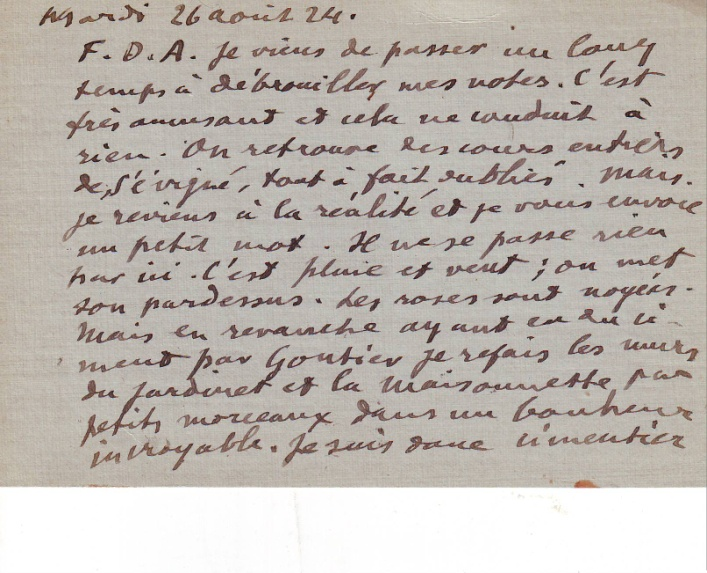 Mardi 26 août 24.
F. D. A. Je viens de passer un long
temps à débrouiller mes notes. C'est
très amusant et cela ne conduit à
rien. On retrouve des cours entiers
de Sévigné, tout à fait oubliés. Mais
je reviens à la réalité et je vous envoie
un petit mot. Il ne se passe rien
par ici. C'est pluie et vent ; on met
son pardessus. Les roses sont noyées.
Mais en revanche ayant eu du ci-
ment par Gontier je refais les murs
du jardinet et la Maisonnette par
petits morceaux dans un bonheur
incroyable. Je suis donc cimentier